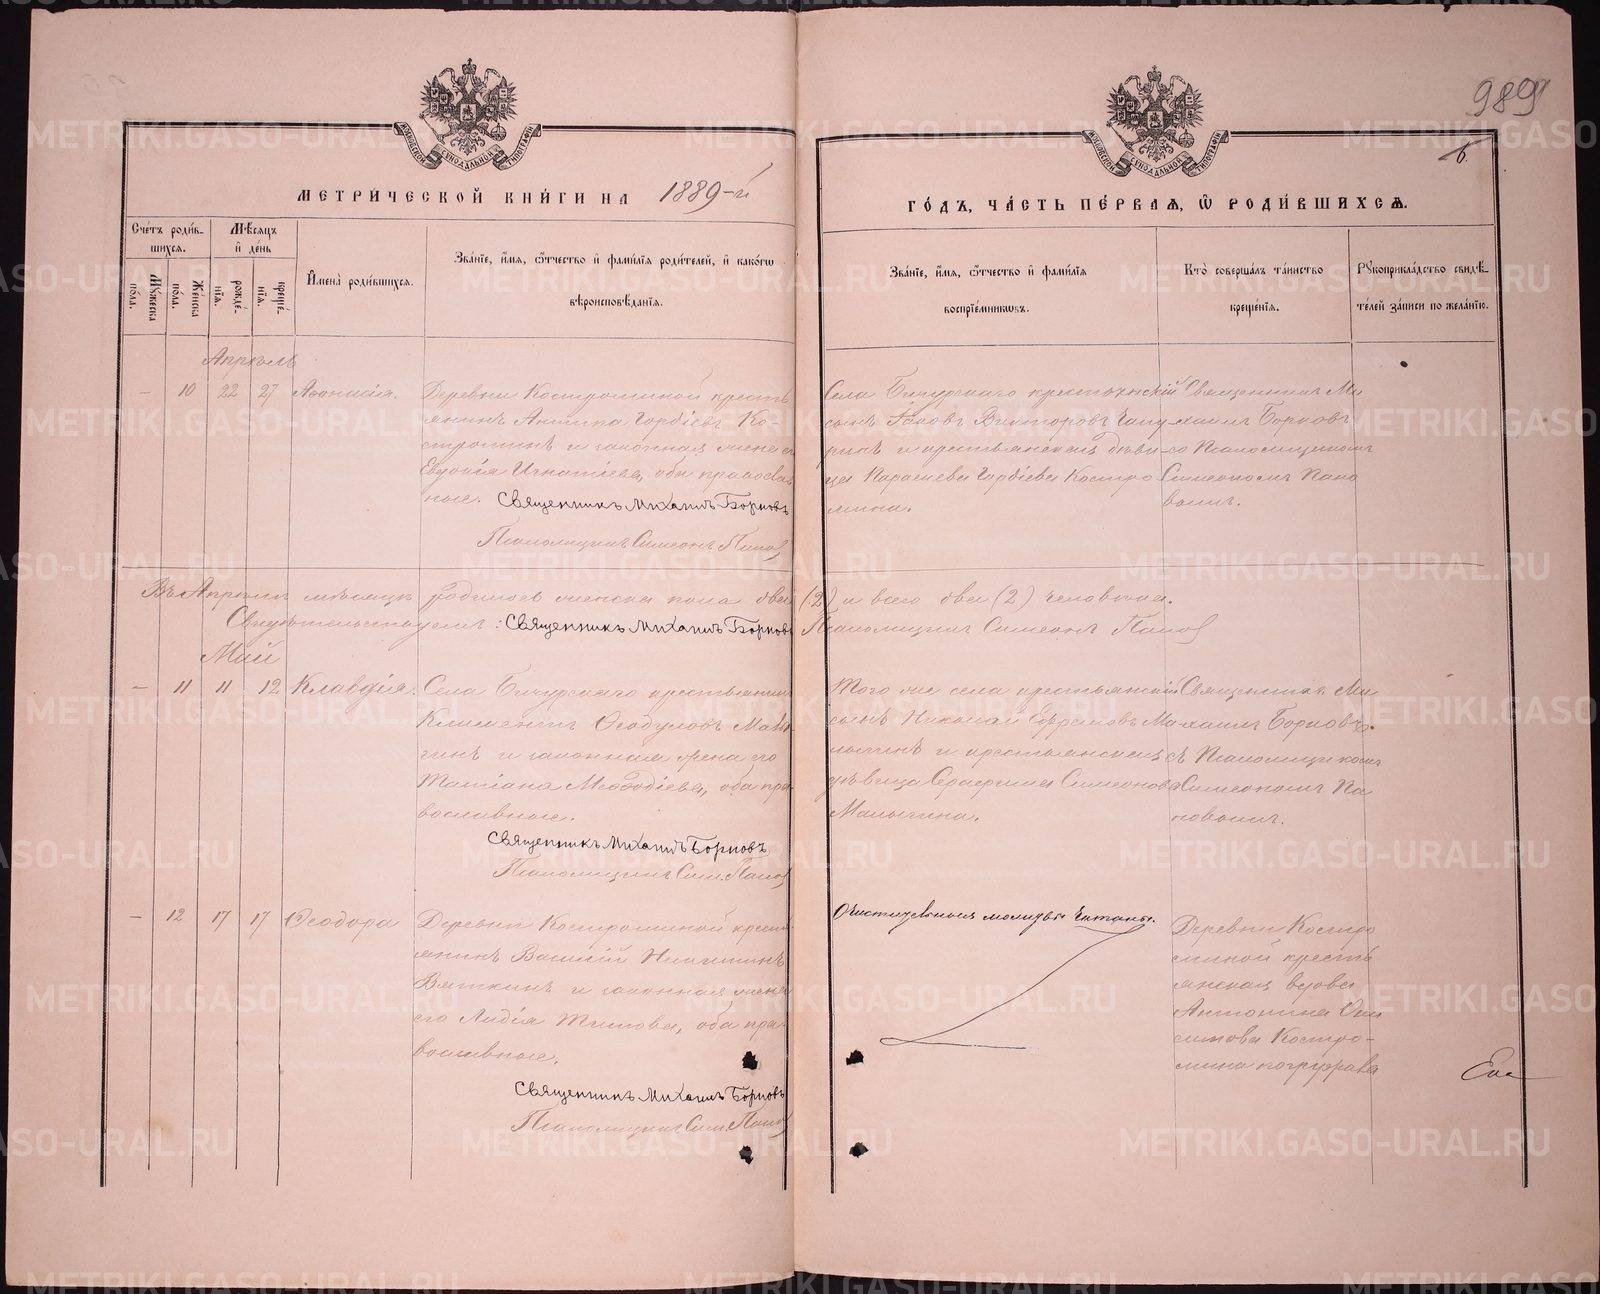 989
6.
МОСКОВСКОЙ СУНОДАЛЬНОЙ ТИПОГРАФІИ
МОСКОВСКОЙ СУНОДАЛЬНОЙ ТИПОГРАФІИ
МЕТРИЧЕСКОЙ КНИГИ НА 1889-й
ГОДЪ, ЧАСТЬ ПЕРВАЯ, Ѡ РОДИВШИХСЯ.
Счетъ родившихся.
Мужеска пола.
Женска пола.
Мѣсяцъ и день
рожденія.
крещенія.
Имена родившихся.
Званіе, имя, ѻтчество и фамилія родителей, и какогѡ
вѣроисповѣданія.
Званіе, имя, ѻтчество и фамилія
воспріемникѡвъ.
Кто совершалъ таинство
крещенія.
Рукоприкладство свидѣ-
телей записи по желанію.
Апрѣль
— 10 22 27 Аѳонасія.
Деревни Костроминой кресть
янинъ Антипа Гордіевъ Ко-
строминъ и законная жена его
Евдокія Игнатіева, оба православ
ные. Священникъ Михаилъ Борковъ
Псаломщикъ Симеонъ Поповъ
Села Бичурскаго крестьянскій
сынъ Іаковъ Викторовъ
и крестьянская дѣви-
ца Параскева Гордіева Костро
мина.
Священникъ Ми
хаилъ Борковъ
со Псаломщикомъ
Симеономъ Попо
вымъ.
Въ Апрѣлѣ мѣсяцѣ родилось женска пола двѣ (2) и всего двѣ (2) человѣка.
Свидѣтельствуемъ: Священникъ Михаилъ Борковъ Псаломщикъ Симеонъ Поповъ
Май
— 11 11 12 Клавдія.
Села Бичурскаго крестьянинъ
Климентъ Ѳеодуловъ Малы
гинъ и законная жена его
Татіана Меѳодіева, оба пра
вославные.
Священникъ Михаилъ Борковъ
Псаломщикъ Сим. Поповъ
Того же села крестьянскій
сынъ Николай Ефремовъ Ма
лыгинъ и крестьянская
дѣвица Серафима Симеонова
Малыгина.
Священникъ Ми
хаилъ Борковъ.
съ Псаломщикомъ
Симеономъ По
повымъ.
— 12 17 17 Ѳеодора
Деревни Костроминой кресть
янинъ Василій Никитинъ
Вяткинъ и законная жена
его Лидія Титова, оба пра-
вославные.
Священникъ Михаилъ Борковъ
Псаломщикъ Сим. Поповъ
Очистительная молитва читана.
Деревни Костро
миной кресть
янская вдова
Антонина
Костро-
мина погружала